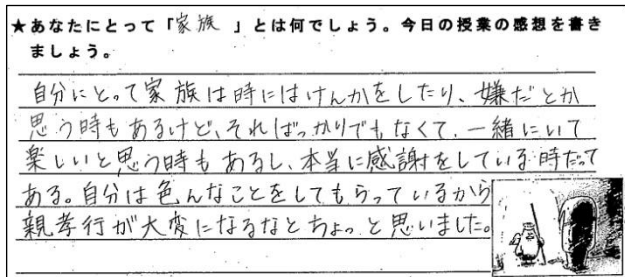 ★あなたにとって「家族」とは何でしょう。今日の授業の感想を書き
ましょう。
自分にとって家族は時にはけんかをしたり、嫌だとか
思う時もあるけど、そればっかりでもなくて、一緒にいて
楽しいと思う時もあるし、本当に感謝をしている時だって
ある。自分は色んなことをしてもらっているから
親孝行が大変になるなとちょっと思いました。